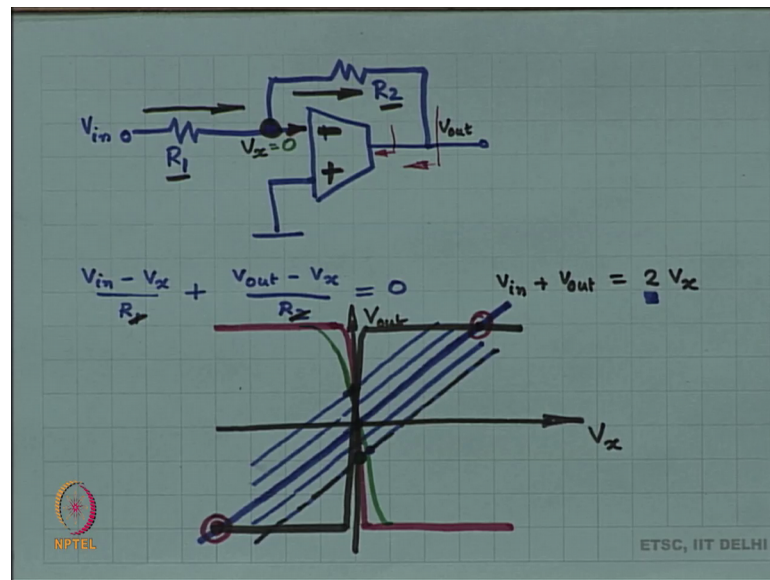 R2
V_in
R1
V_x=0
V_out
−
+
(V_in − V_x)/R + (V_out − V_x)/R = 0
V_in + V_out = 2 V_x
V_out
V_x
NPTEL
ETSC, IIT DELHI